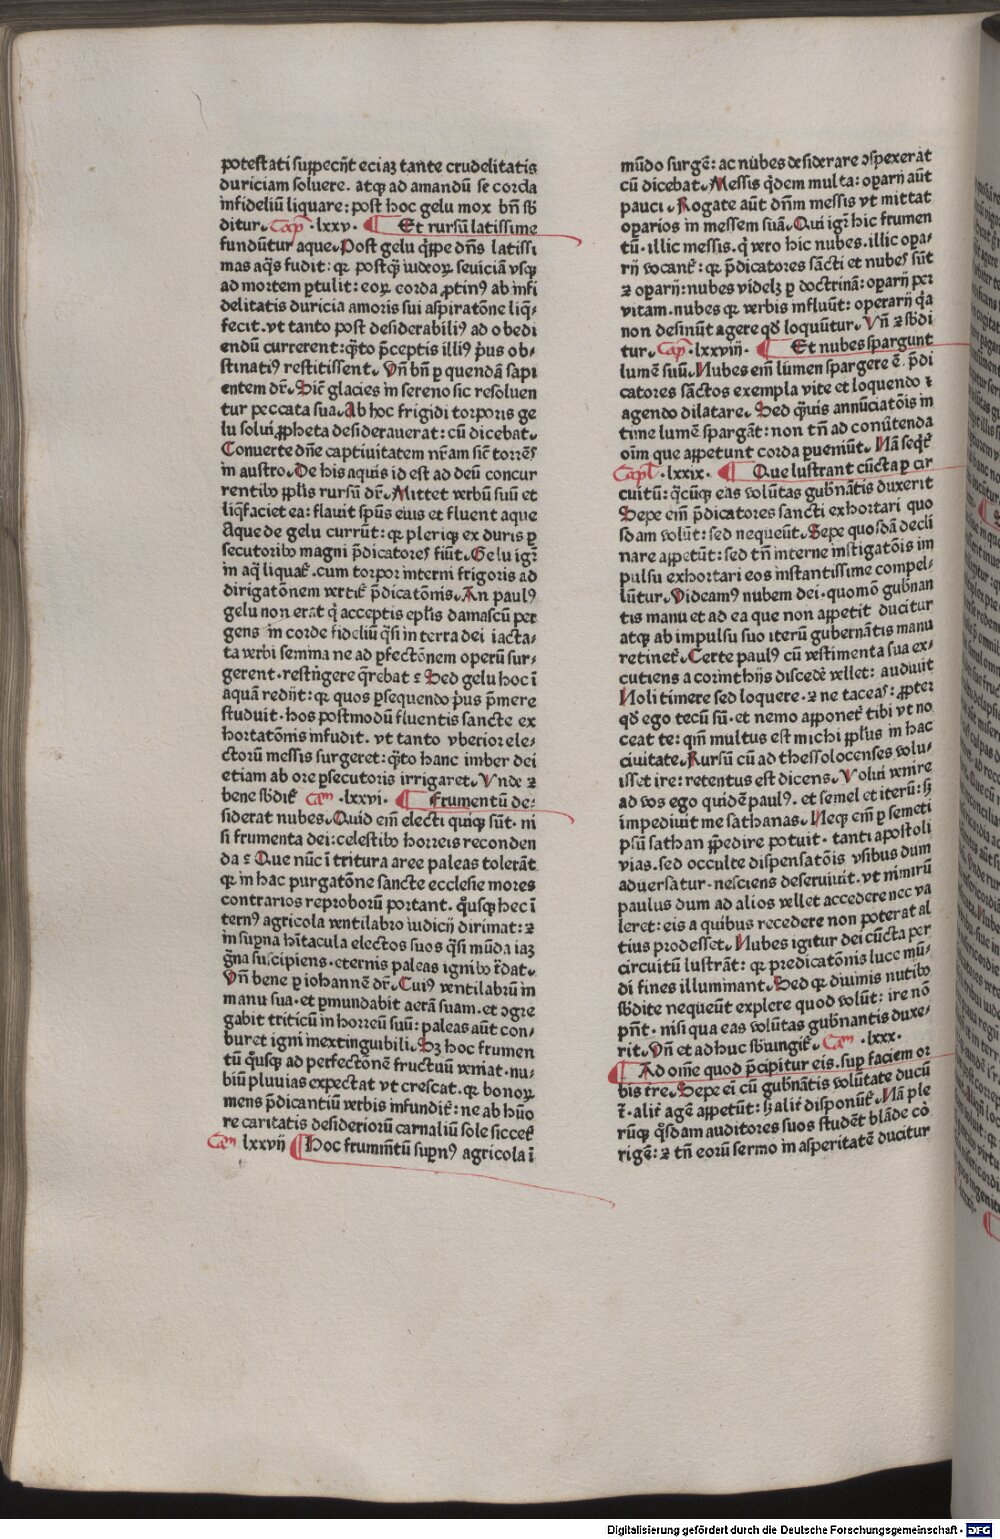 potestati suppecñt eciaꝫ tante crudelitatis
duriciam soluere. atqꝫ ad amandū se corda
infideliū liquare: post hoc gelu mox bñ sb̄
ditur. Cap̄ .lxxv. Et rursū latissime
fundūtur aque. Post gelu q̄ppe dn̄s latissi
mas aq̄s fudit: qꝛ postq̄ꝫ iudeoꝝ seuiciā vsqꝫ
ad mortem ꝑtulit: eoꝝ corda ꝓtinꝰ ab infi
delitatis duricia amoris sui aspiratōne liq̄⸗
fecit. vt tanto post desiderabiliꝰ ad obedi
endū currerent: q̄to p̄ceptis illiꝰ pͥus ob⸗
stinatiꝰ restitissent. Vn̄ bn̄ ꝑ quendā sapi
entem dr̄. Sic̄ glacies in sereno sic resoluen
tur peccata sua. Ab hoc frigidi torporis ge
lu solui ꝓpheta desiderauerat: cū dicebat.
Conuerte dn̄e captiuitatem nr̄am sic̄ torrēs
in austro. De his aquis id est ad deū concur
rentibꝰ pplis rursū dr̄. Mittet verbū suū et
liq̄faciet ea: flauit sp̄us eius et fluent aque
Aque de gelu currūt: qꝛ pleriqꝫ ex duris ꝑ
secutoribꝰ magni p̄dicatores fiūt. Gelu igr̄
in aq̄ liquat̄. cum torpor interni frigoris ad
dirigatōnem vertit̄ p̄dicatōnis. An paulꝰ
gelu non erat q̄ acceptis epl̄is damascū per
gens in corde fideliū q̄si in terra dei iacta⸗
ta verbi semina ne ad ꝑfectōnem operū sur⸗
gerent. restīgere q̄rebat ꝛ Sed gelu hoc ī
aquā redijt: qꝛ quos ꝑsequendo pͥus p̄mere
studuit. hos postmodū fluentis sancte ex
hortatōnis infudit. vt tanto vberior ele⸗
ctorū messis surgeret: q̄to hanc imber dei
etiam ab ore ꝑsecutoris irrigaret. Vnde ⁊
bene sb̄dit̄ Cam̄ .lxxvi. Frumentū de⸗
siderat nubes. Quid em̄ electi quiqꝫ sūt. ni
si frumenta dei: celestibꝰ horreis reconden
da ꝛ Que nūc ī tritura aree paleas tolerāt
qꝛ in hac purgatōne sancte ecclesie mores
contrarios reproborū portant. q̄usqꝫ hec ī
ternꝰ agricola ventilabro iudicij dirimat: ⁊
in sup̄na h̄itacula electos suos q̄si mūda iaꝫ
g̃na suscipiens. eternis paleas ignibꝰ t̄dat.
Vn̄ bene ꝑ iohannē dr̄. Cuiꝰ ventilabrū in
manu sua. et ꝑmundabit aerā suam. et ꝯgre
gabit triticū in horreū suū: paleas aūt con⸗
buret igni inextinguibili. Sꝫ hoc frumen
tū q̄usqꝫ ad perfectōnē fructuū veniat. nu⸗
biū pluuias expectat vt crescat. qꝛ bonoꝝ
mens p̄dicantiū verbis infundit̄: ne ab hūo
re caritatis desideriorū carnaliū sole siccet̄
Cam̄ lxxvij Hoc frumm̄tū sup̄nꝰ agricola ī
mūdo surgē: ac nubes desiderare ꝯspexerat
cū dicebat. Messis q̄dem multa: oꝑarij aūt
pauci. Rogate aūt dn̄m messis vt mittat
oꝑarios in messem suā. Qui igr̄ hic frumen
tū. illic messis. q̄ vero hic nubes. illic oꝑa⸗
rij vocant̄: qꝛ p̄dicatores sācti et nubes sūt
⁊ oꝑarij: nubes videlꝫ ꝑ doctrinā: oꝑarij per
vitam. nubes qꝛ verbis influūt: operarij q̄a
non desinūt agere qd̄ loquūtur. Vn̄ ⁊ sb̄di
tur. Cap̄ .lxxviij. Et nubes spargunt
lumē suū. Nubes em̄ lumen spargere ē. p̄di
catores sāctos exempla vite et loquendo ⁊
agendo dilatare. Sed q̄uis annūciatōis in
time lumē spargāt: non tn̄ ad conūtenda
oīm que appetunt corda ꝑueniūt. Nā seq̄t̄
Capl̄ .lxxix. Que lustrant cūcta ꝑ cir
cuitū: q̄cūqꝫ eas volūtas gub̄nātis duxerit
Sepe em̄ p̄dicatores sancti exhortari quo
sdam volūt: sed nequeūt. Sepe quosdā decli
nare appetūt: sed tn̄ interne instigatōis im
pulsu exhortari eos instantissime compel⸗
lūtur. Videamꝰ nubem dei. quomō gub̄nan
tis manu et ad ea que non appetit ducitur
atqꝫ ab impulsu suo iterū gubernātis manu
retinet̄. Certe paulꝰ cū vestimenta sua ex⸗
cutiens a corinthijs discedē vellet: audiuit
Noli timere sed loquere. ⁊ ne taceas: ꝓpter
qd̄ ego tecū sū. et nemo apponet̄ tibi vt no
ceat te: qm̄ multus est michi pplūs in hac
ciuitate. Rursū cū ad thessolocenses volu⸗
isset ire: retentus est dicens. Volui venire
ad vos ego quidē paulꝰ. et semel et iterū: sꝫ
īmpediuit me sathanas. Neqꝫ em̄ ꝑ semeti
psū sathan īpedire potuit. tanti apostoli
vias. sed occulte dispensatōis vsibus dum
aduersatur. nesciens deseruiuit. vt nimirū
paulus dum ad alios vellet accedere nec va
leret: eis a quibus recedere non poterat al
tius prodesset. Nubes igitur dei cūcta per
circuitū lustrāt: qꝛ predicatōnis luce mū⸗
di fines illuminant. Sed qꝛ diuinis nutibꝰ
sb̄dite nequeūt explere quod volūt: ire nō
pn̄t. nisi qua eas volūtas gub̄nantis duxe⸗
rit. Vn̄ et adhuc sb̄iungit̄. Cam̄ .lxxx.
Ad om̄e quod p̄cipitur eis. suꝑ faciem or
bis tre. Sepe ei cū gub̄nātis volūtate ducū
t̄. alit̄ agē appetūt: sꝫ alit̄ disponūt̄. Nā ple
rūqꝫ q̄sdam auditores suos studēt blāde cō
rigē: ⁊ tn̄ eorū sermo in asperitatē ducitur
Digitalisierung gefördert durch die Deutsche Forschungsgemeinschaft - DFG